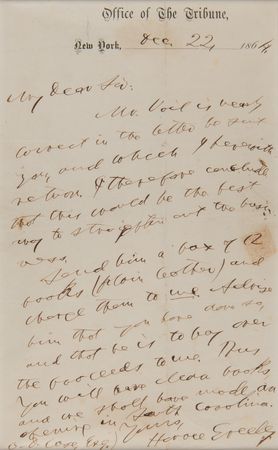 Office of The Tribune,
New York, Dec. 22, 1864
My Dear Sir:
Mr. Vail is nearly
correct in the letter he sent
you, and which I herewith
return. I therefore conclude
that this would be the best
way to straighten out the busi-
ness.
Send him a box of 12
books (plain leather) and
charge them to me. Advise
him that you have done so,
and that he is to pay over
the proceeds to me. Thus
you will have clean books,
and we shall have made an
opening in South Carolina.
Yours,
Horace Greeley
Case, Esq.